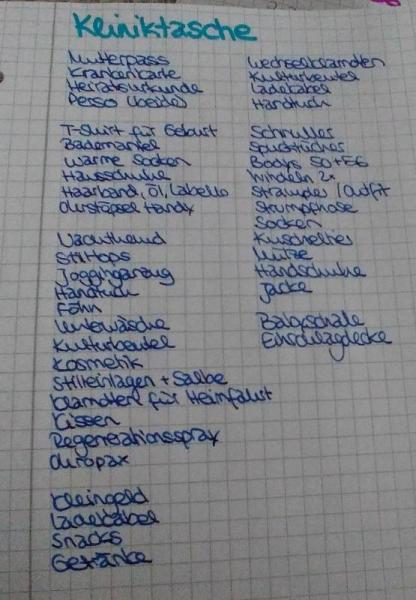 Kliniktasche
Mutterpass
Krankenkarte
Heiratsurkunde
Perso (beide)
T-Shirt für Geburt
Bademantel
warme Socken
Hausschuhe
Haarband, Öl, Labello
Ohrstöpsel Handy
Nachthemd
Stilltops
Jogginganzug
Handtuch
Föhn
Unterwäsche
Kulturbeutel
Kosmetik
Stilleinlagen + Salbe
Klamotten für Heimfahrt
Kissen
Regenerationsspray
Ohropax
Kleingeld
Ladekabel
Snacks
Getränke
Wechselklamotten
Kulturbeutel
Ladekabel
Handtuch
Schnuller
Spucktücher
Bodys 50+56
Windeln 2x
Strampler / Outfit
Strumpfhose
Socken
Kuscheltier
Mütze
Handschuhe
Jacke
Babyschale
Einschlagdecke